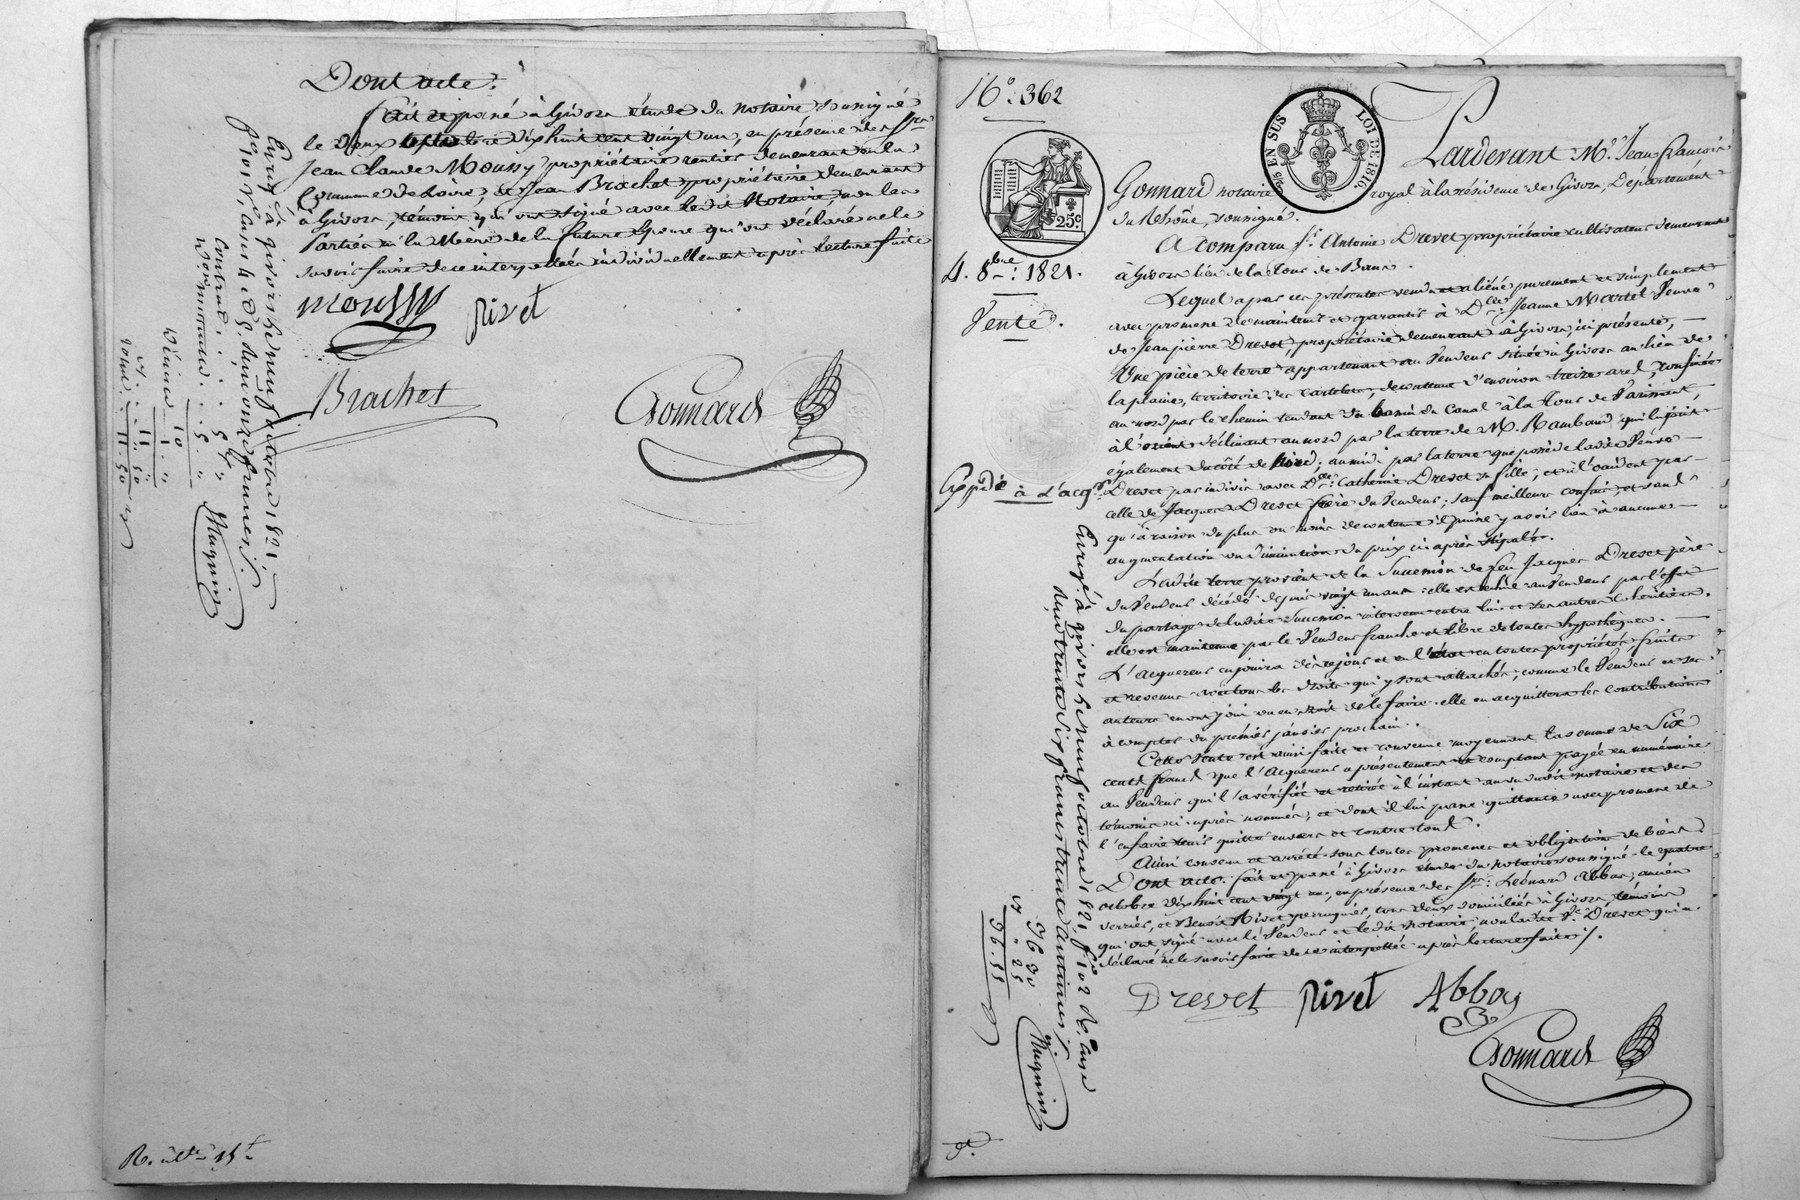 Dont acte.
fait et passé à Givors étude du notaire soussigné
le deux octobre dix huit cent vingt un, en présence des Srs
Jean Claude Moussy propriétaire rentier demeurant en la
Commune de Loire, et Jean Brachet propriétaire demeurant
à Givors, témoins qui ont signé avec ledit Notaire, non les
Parties ni la Mère de la future Epouse qui ont déclaré ne le
savoir faire de ce interpellées individuellement après lecture faite
Moussy
Rivet
Brachet
Gonnard
Enregé à givors le neuf octobre 1821,
fo 101 Vo, Case 4 et 5. Reçu onze francs
Contrat . . 5 " "
Donation . . 5 "
10 "
Décime 1 . "
11 . "
11 . 50
Magnin
No. 362
EN SUS
LOI DE 1816.
25c.
Pardevant Me. Jean François
Gonnard notaire royal à la résidence de Givors, Département
du Rhône, soussigné.
A comparu Sr. Antoine Drevet propriétaire cultivateur demeurant
à Givors lieu de la Tour de Bans.
4. 8bre. 1821.
Vente.
Lequel a par ces présentes vendu et aliéné purement et simplement
avec promesse de maintenir et garantir à Dlle. Jeanne Martel Veuve
de Jean pierre Drevet, propriétaire demeurant à Givors, ici présente,
Une pièce de terre appartenant au Vendeur située à Givors au lieu de
la plaine, territoire des Cartelets, de contenue d'environ treize ares, confinée
au nord par le chemin tendant du bassin du Canal à la Tour de Varissant,
à l'orient déclinant au nord par la terre de M. Rambaud, qui la joint
également du côté de bise; au midi par la terre que possède ladite Veuve
Expédié à l'acqr.
Drevet par indivis avec Dlle. Catherine Drevet sa fille; et à l'occident par
celle de Jacques Drevet frère du Vendeur; sauf meilleurs confins, et sans
qu'à raison du plus ou moins de contenue il puisse y avoir lieu à aucune
augmentation ou diminution du prix ci après stipulé.
Ladite terre provient de la Succession de feu Jacques Drevet père
du Vendeur décédé depuis vingt un ans: elle est échue au Vendeur par l'effet
du partage de ladite Succession intervenu entre lui et ses autres cohéritiers.
elle est maintenue par le Vendeur franche et libre de toutes hypothèques.
L'acquereur en jouira dès ce jour et en l'état en toutes propriétés, fruits
et revenus avec tous les droits qui y sont attachés, comme le Vendeur et ses
auteurs en ont joui ou eu droit de le faire. elle en acquittera les contributions
à compter du premier janvier prochain.
Cette Vente est ainsi faite et convenue moyennant la somme de Six
cents francs que l'acquereur a présentement et comptant payée en numéraire
au Vendeur qui l'a vérifiée et retirée à l'instant au vu dudit notaire et des
témoins ci-après nommés, et dont il lui passe quittance avec promesse de
l'en faire tenir quitte envers et contre tous.
Ainsi convenu et arrêté sous toutes promesses et obligations de biens.
Dont acte. fait et passé à Givors étude du notaire soussigné le quatre
octobre dix huit cent vingt un, en présence des Srs. Léonard Abboy, ancien
verrier, et Benoit Rivet perruquier, tous deux domiciliés à Givors, témoins
qui ont signé avec le Vendeur et ledit Notaire, non ladite Ve. Drevet qui a
déclaré ne le savoir faire de ce interpellée après lecture faite /.
Drevet Rivet Abboy
Gonnard
Enregé à givors le neuf octobre 1821 fo 102 Ro. Case
Reçu trente six francs trente centimes
36 30
25
36.55
Magnin